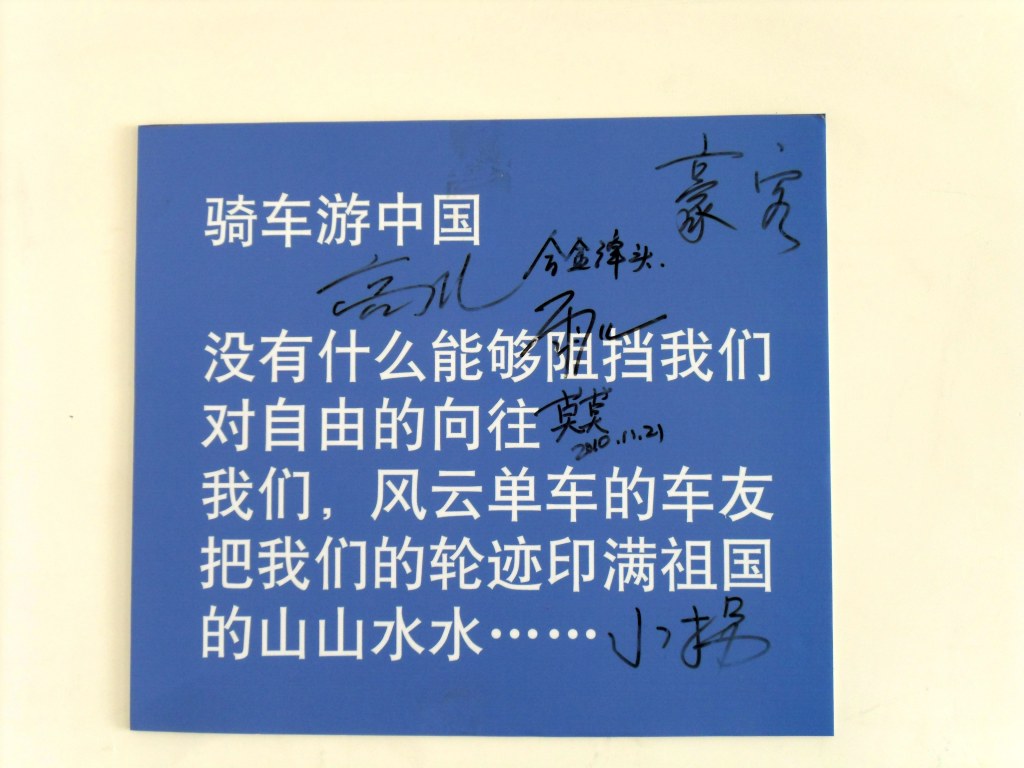 骑车游中国
豪客
合金锋头.
没有什么能够阻挡我们
对自由的向往
莫莫
2010.11.21
我们，风云单车的车友
把我们的轮迹印满祖国
的山山水水……
小拐